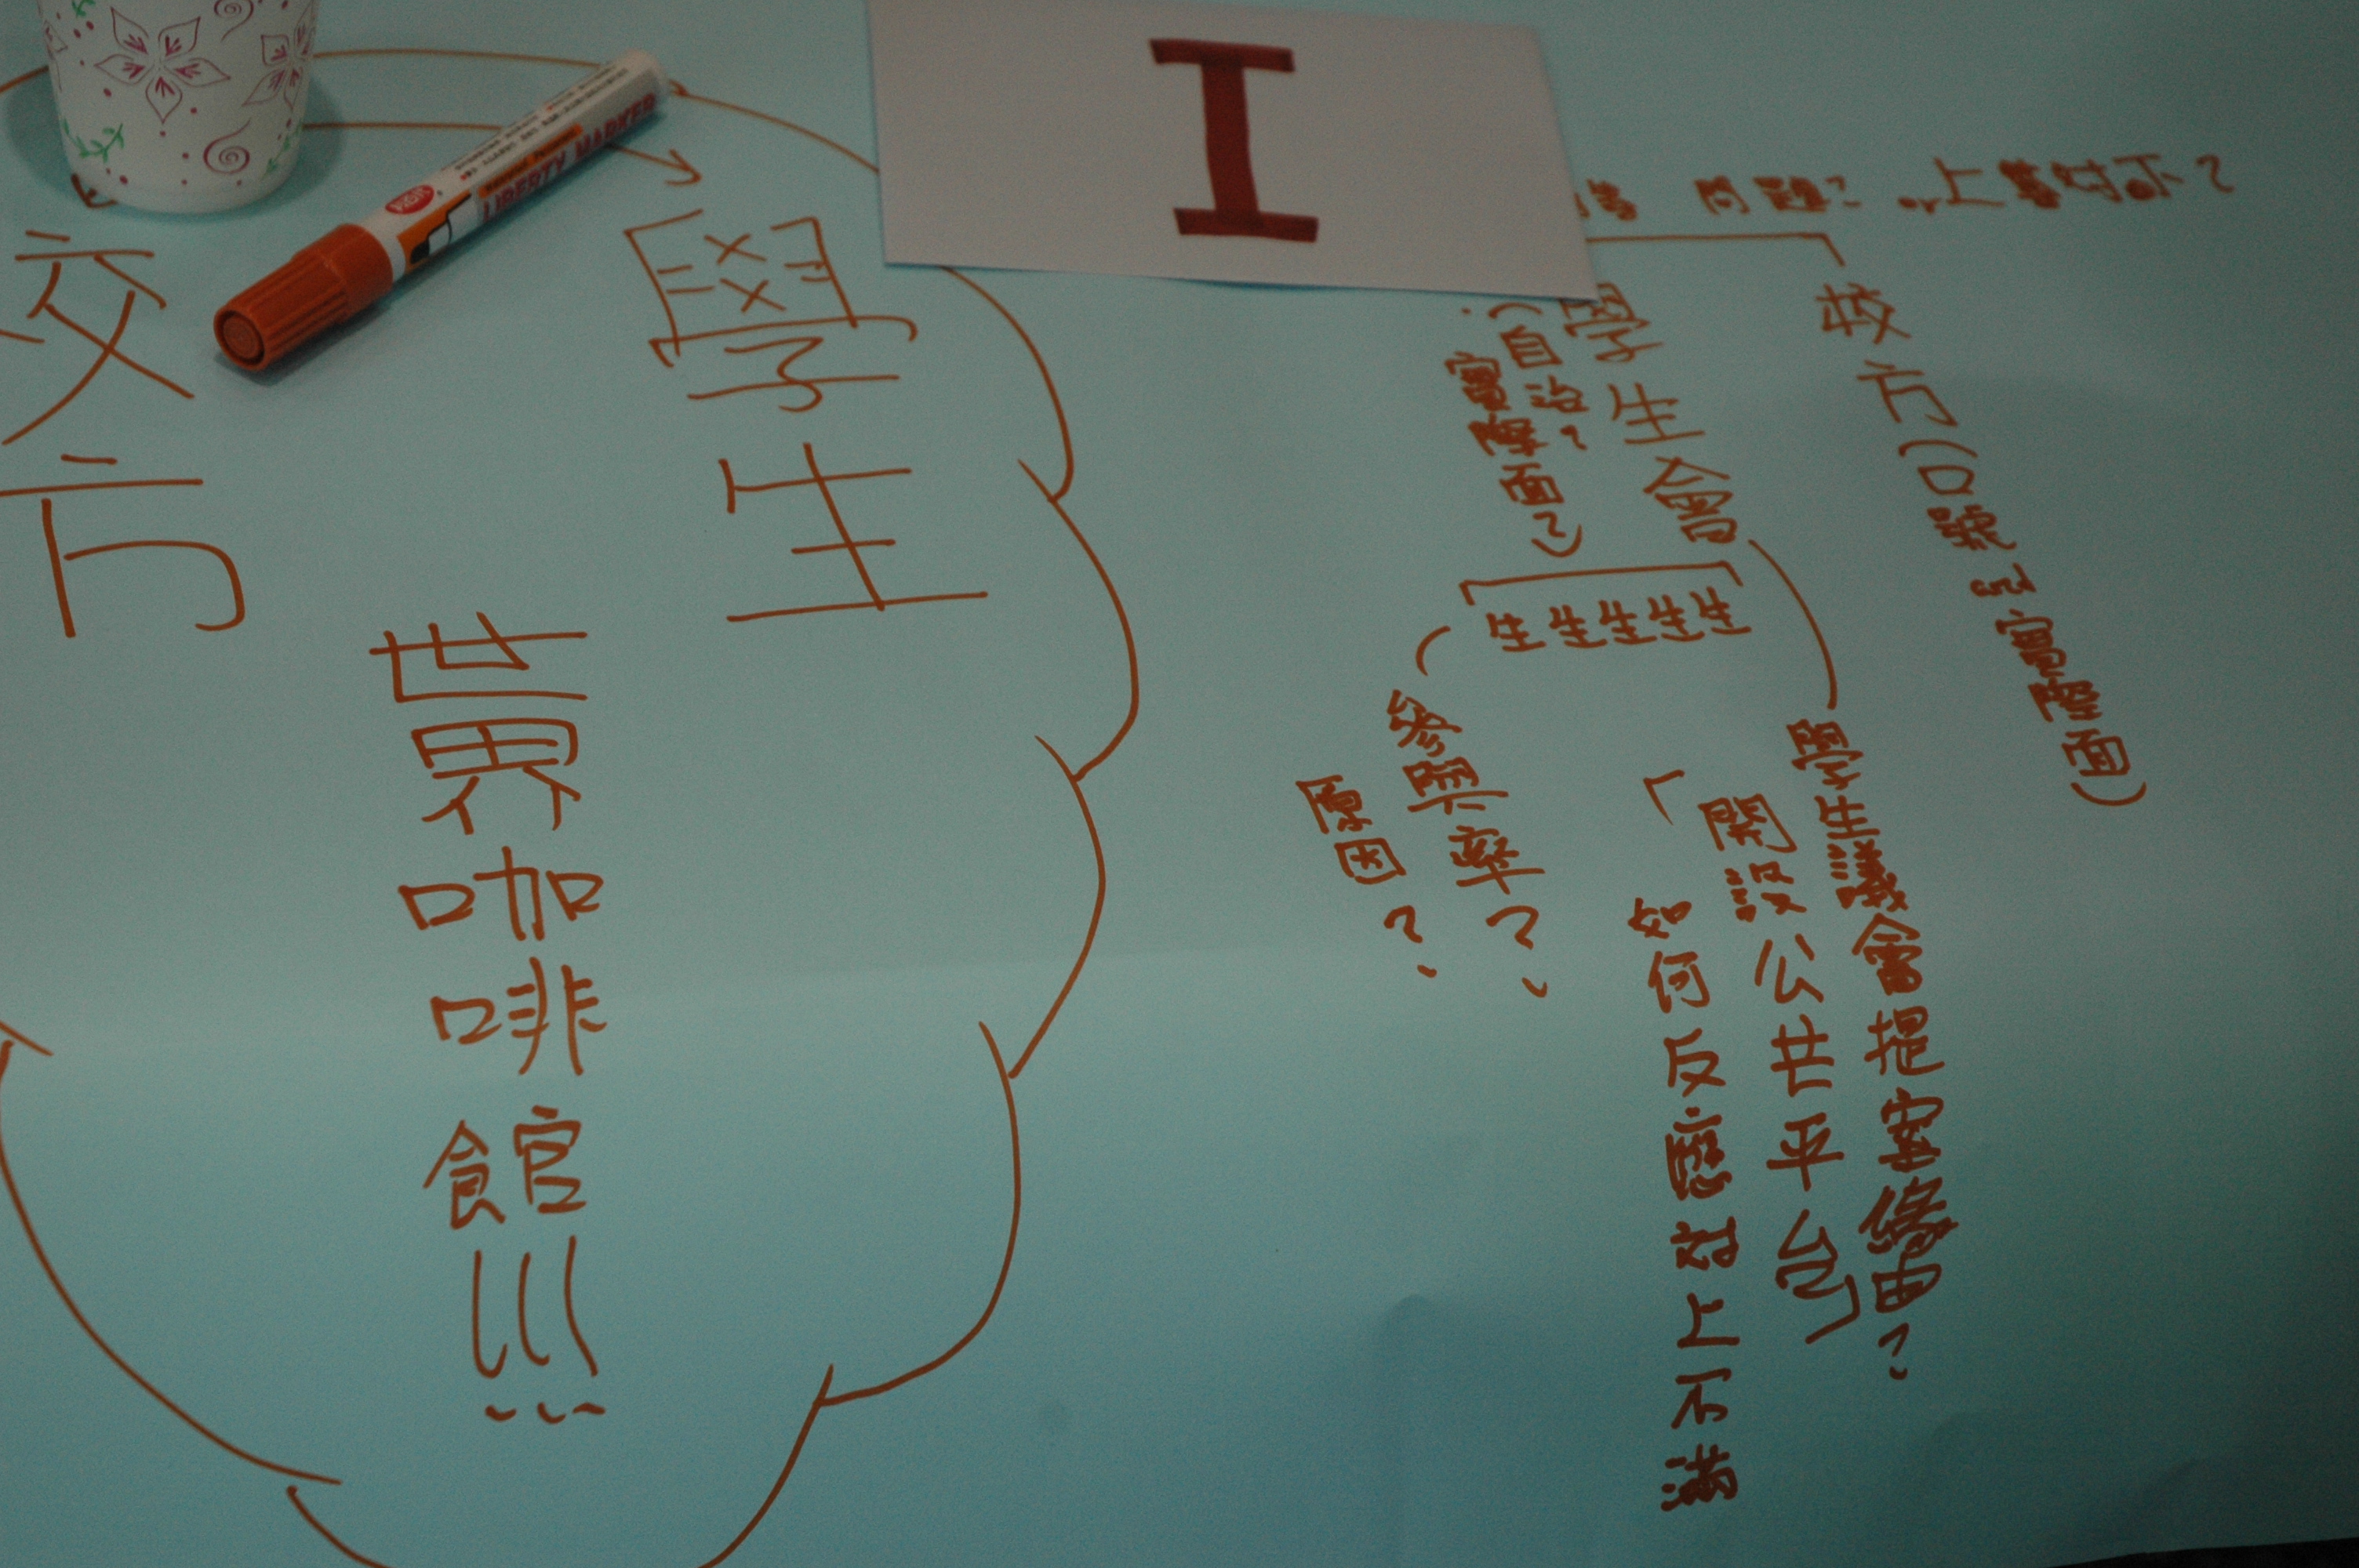 I
問題?
上對下?
校方(口號 or 實際面)
學生會
(自治?
實際面?)
生生生生生
學生議會提案緣由?
「開設公共平台」
如何反應對上不滿
參與率?
原因?
學生
校方
世界咖啡館!!!
LIBERTY MARKER